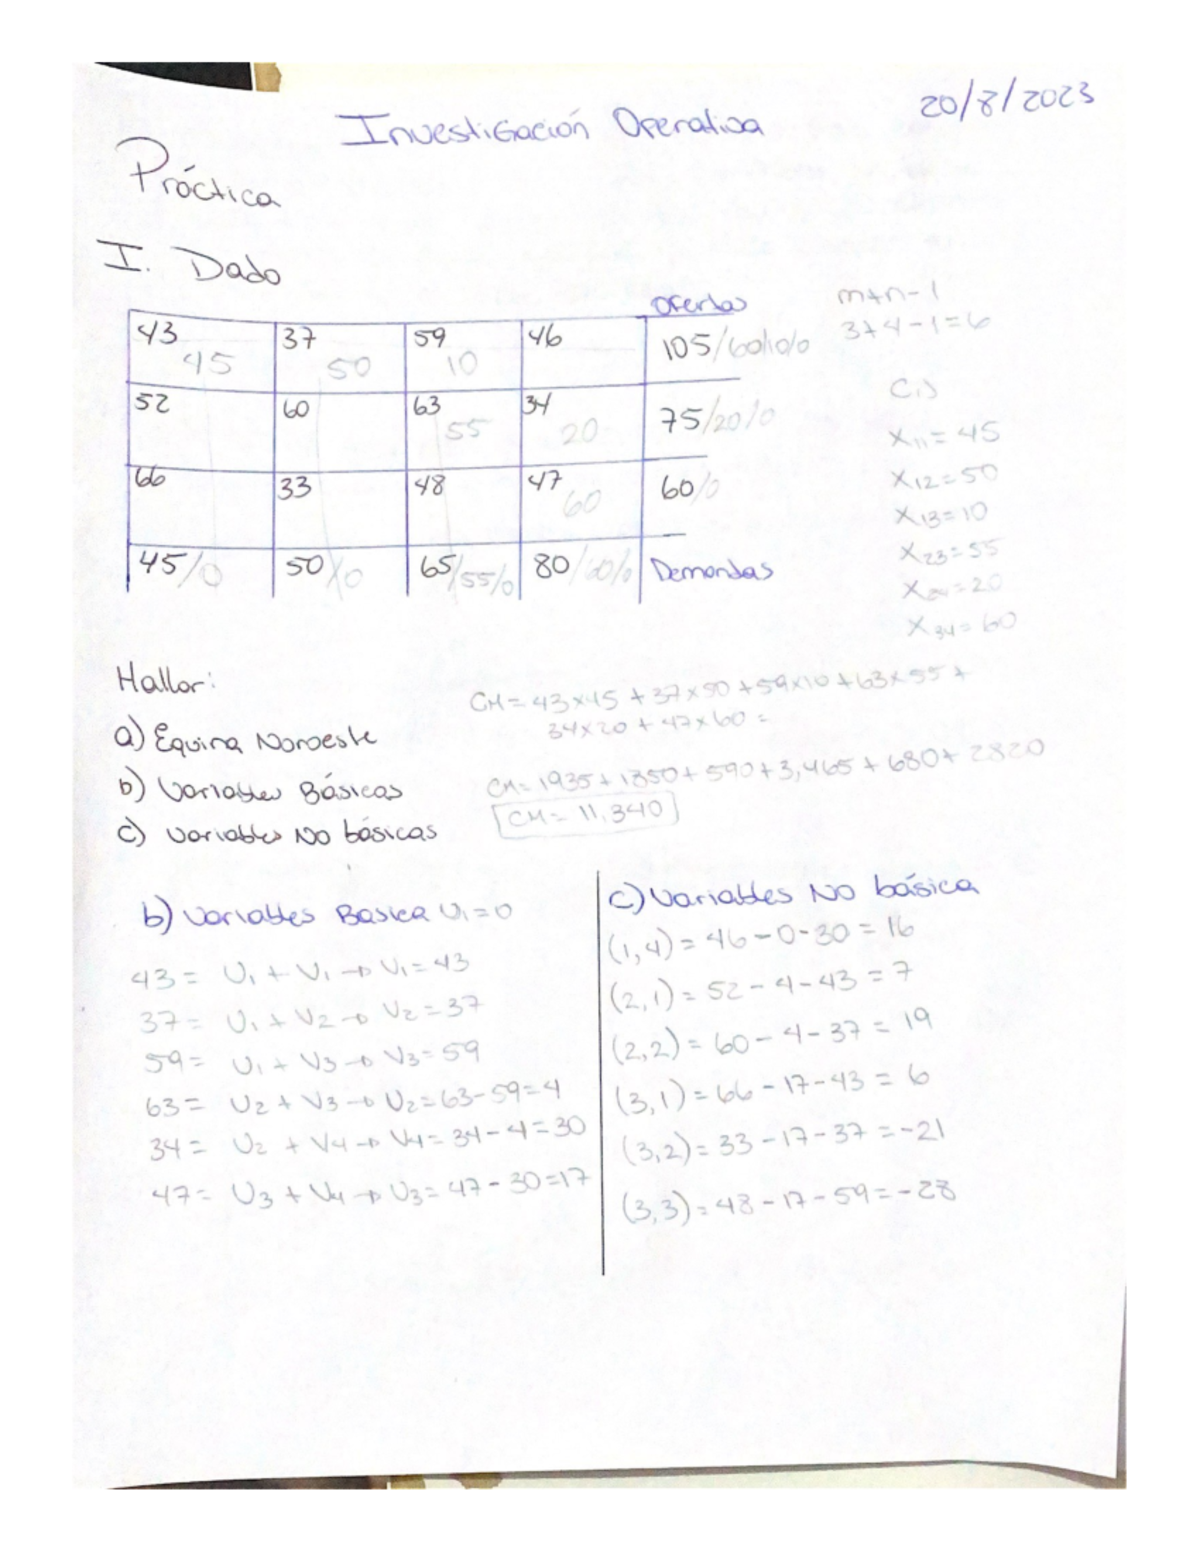 20/8/2023
Investigación Operativa
Práctica
I. Dado
Ofertas
43 45 37 50 59 10 46 105/60/10/0
52 60 63 55 34 20 75/20/0
66 33 48 47 60 60/0
45/0 50/0 65/55/0 80/60/0 Demandas
m+n-1
3+4-1=6
X11= 45
X12=50
X13=10
X23=55
X24=20
X34=60
Hallar:
a) Equina Noroeste
b) Variables Básicas
c) Variables No básicas
CM= 43x45 + 37x50 +59x10 +63x55 +
34x20 + 47x60 =
CM= 1935+1850+590+3,465+680+2820
CM= 11,340
b) Variables Basica U1=0
43= U1 + V1 → V1=43
37= U1 + V2 → V2=37
59= U1 + V3 → V3=59
63= U2 + V3 → U2=63-59=4
34= U2 + V4 → V4=34-4=30
47= U3 + V4 → U3=47-30=17
c) Variables No básica
(1,4)= 46-0-30=16
(2,1)= 52-4-43=7
(2,2)= 60-4-37=19
(3,1)= 66-17-43=6
(3,2)= 33-17-37=-21
(3,3)= 48-17-59=-28